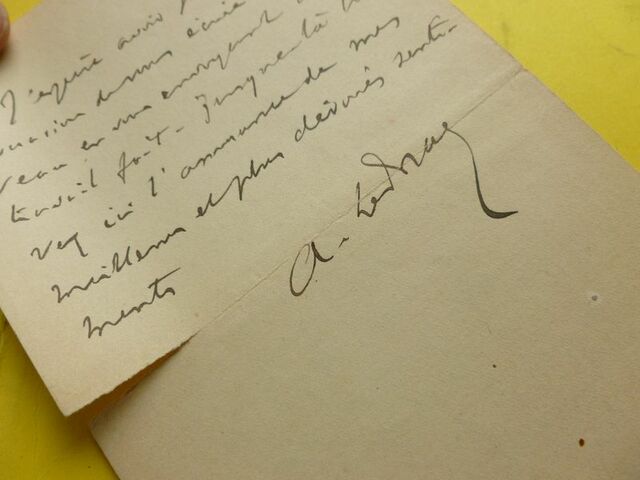 J'espère avoir
occasion de vous écrire
veau en vous envoyant
travail fait - Jusque là
vez ici l'assurance de mes
meilleurs et plus dévoués senti-
ments
A. Ledrag